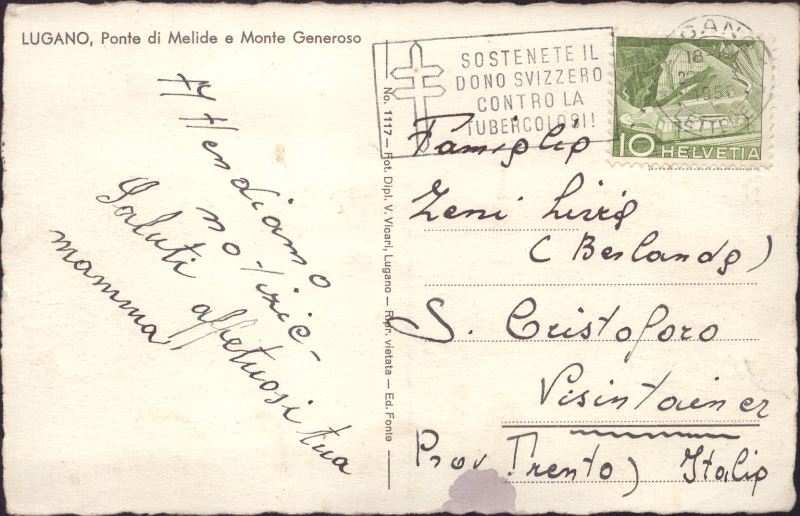 LUGANO, Ponte di Melide e Monte Generoso
Attendiamo
notizie-
Saluti affettuosi tua
mamma
No. 1117 — Fot. Dipl. V. Vicari, Lugano — Ripr. vietata — Ed. Fonte
SOSTENETE IL
DONO SVIZZERO
CONTRO LA
TUBERCOLOSI!
1956
10 HELVETIA
Famiglia
Zeni
(Berlanda)
S. Cristoforo
Visintainer
Prov Trento) Italia